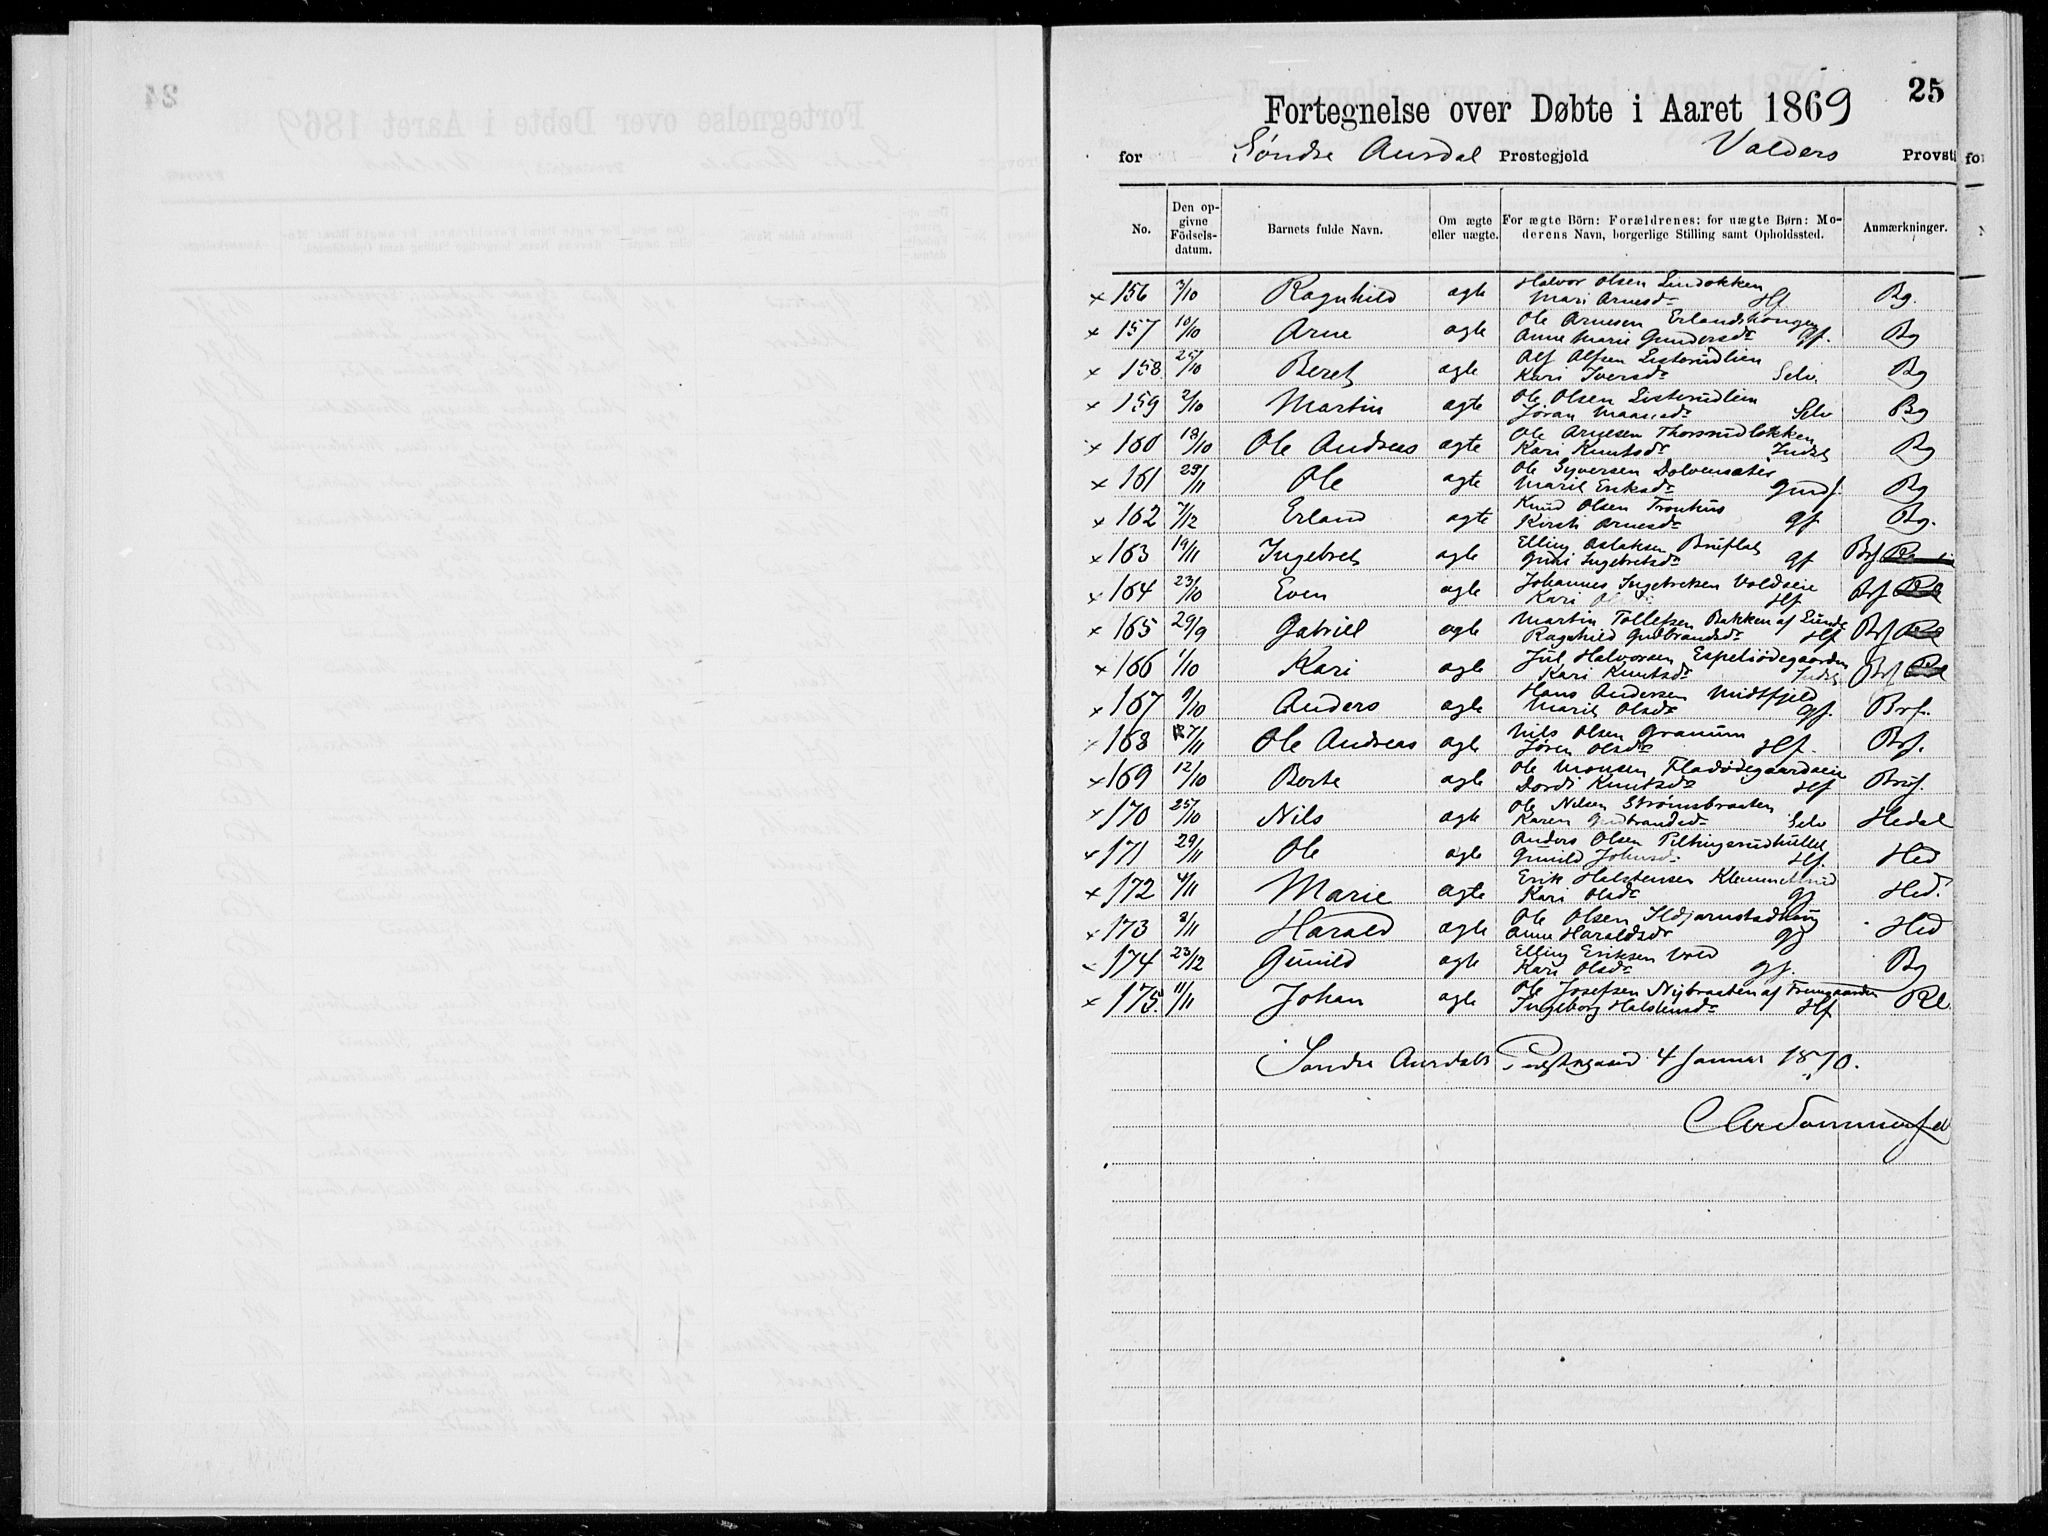 25
Fortegnelse over Døbte i Aaret 1869
for Søndre Aurdal Prestegjeld Valders Provsti
No.
Den opgivne Födselsdatum.
Barnets fulde Navn.
Om ægte eller uægte.
For ægte Börn: Forældrenes; for uægte Børn: Moderens Navn, borgerlige Stilling samt Opholdssted.
Anmærkninger.
x 156 3/10 Ragnhild ægte Halvor Olsen Lindokken
Mari Arnesdr Hf. Bg.
x 157 10/10 Arne ægte Ole Arnesen Erlandshaugen
Anne Marie Gundersdr gf. Bg
x 158 25/10 Beret ægte Alf Alfsen Listerudlien
Kari Iversdr Selv. Bg
x 159 2/10 Martin ægte Ole Olsen Listerudlien
Jøran Selv Bg
x 160 18/10 Ole Andreas ægte Ole Arnesen Thorsrudløkken
Kari Knutsdr Inds Bg
x 161 29/11 Ole ægte Ole Syversen Dolvensæter
Marit Eriksdr gmf. Bg
x 162 7/12 Erland ægte Knud Olsen Tronhus
Kirsti Arnesdr gf Bg.
x 163 19/11 Ingebret ægte Elling Aslaksen Bruflat
Guri Ingebretsdr gf Brf
x 164 23/10 Even ægte Johannes Ingebretsen Voldseie
Kari Hf Brf
x 165 29/9 Gabriel ægte Martin Tollefsen Bakken af Lunde
Ragnhild Gudbrandsdr Hf Brf
x 166 1/10 Kari ægte Jul Halvorsen Espeliødegaarden
Kari Knutsdr Inds Brf
x 167 9/10 Anders ægte Hans Andersen Midtfjeld
Marit Olsdr gf. Brf.
x 168 27/11 Ole Andreas ægte Nils Olsen Granum
Jøren Olsdr Hf. Brf.
x 169 12/10 Berte ægte Ole Monsen Fladødegaardseie
Dordi Knutsdr Hf Bruf.
x 170 25/10 Nils ægte Ole Nilsen Strømsbraaten
Karen Gudbrandsdr Selv Hedal
x 171 29/11 Ole ægte Anders Olsen Piltingsrudhullet
Gunild Johnsdr Hf. Hed
x 172 4/11 Marie ægte Erik Halstensen Klemmetsrud
Kari Olsdr gf Hed.
x 173 8/11 Harald ægte Ole Olsen Ildjarnstadhaug
Anne Haraldsdr gf Hed
x 174 23/12 Gunild ægte Elling Eriksen Vold
Kari Olsdr gf. Bg
x 175. 11/11 Johan ægte Ole Josefsen Nybraaten af Fremgaarden
Ingeborg Halstensdr Hf Rl.
Søndre Aurdals Prestegaard 4 Januar 1870.